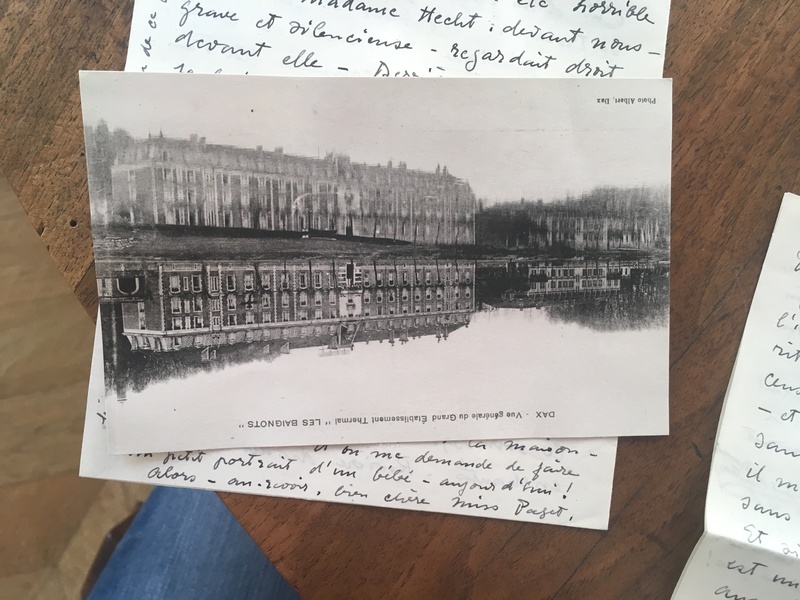 été horrible
Madame Hecht : devant nous –
grave et silencieuse – regardait droit
devant elle –
Photo Albert, Dax
DAX - Vue générale du Grand Établissement Thermal " LES BAIGNOTS "
la maison –
on me demande de faire
petit portrait d'un bébé – aujourd'hui !
alors – au-revoir, bien chère Miss Paget.
– et
sans
il m
sans
Et si
est un